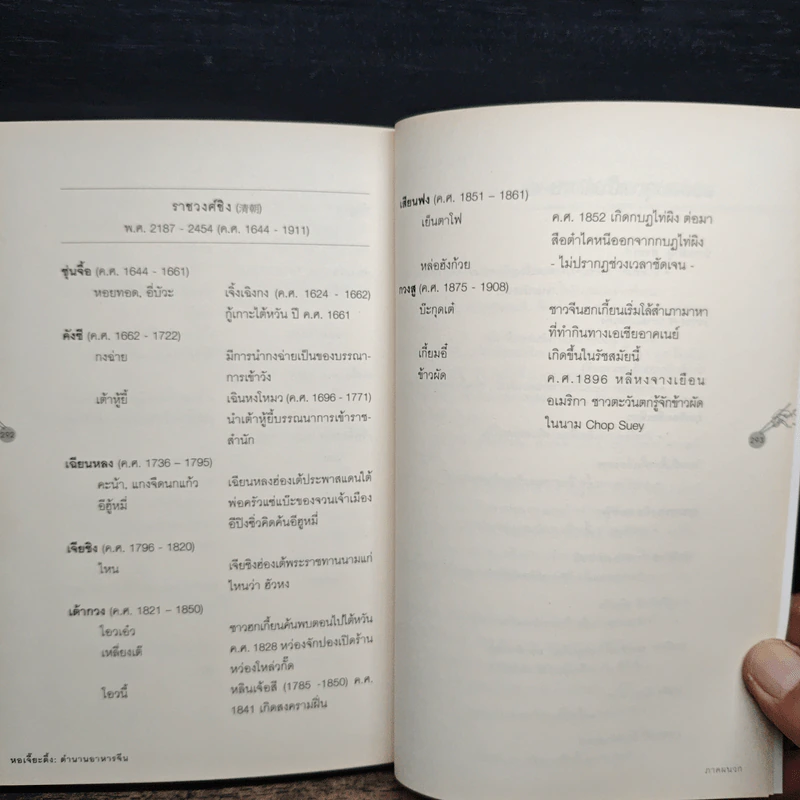 ราชวงศ์ชิง (清朝)
พ.ศ. 2187 - 2454 (ค.ศ. 1644 - 1911)
ชุ่นจื้อ (ค.ศ. 1644 - 1661)
หอยทอด, อี่บัวะ เจิ้งเฉิงกง (ค.ศ. 1624 - 1662)
กู้เกาะไต้หวัน ปี ค.ศ. 1661
คังซี (ค.ศ. 1662 - 1722)
กงฉ่าย มีการนำกงฉ่ายเป็นของบรรณา-
การเข้าวัง
เต้าหู้ยี้ เฉินหงโหมว (ค.ศ. 1696 - 1771)
นำเต้าหู้ยี้บรรณนาการเข้าราช-
สำนัก
เฉียนหลง (ค.ศ. 1736 – 1795)
คะน้า, แกงจืดนกแก้ว เฉียนหลงฮ่องเต้ประพาสแดนใต้
อีฮู้หมี่ พ่อครัวแซ่แป๊ะของจวนเจ้าเมือง
อีปิงซิ่วคิดค้นอีฮู้หมี่
เจียชิง (ค.ศ. 1796 - 1820)
ไหน เจียชิงฮ่องเต้พระราชทานนามแก่
ไหนว่า ฮัวหง
เต้ากวง (ค.ศ. 1821 – 1850)
โอวเอ๋ว ชาวฮกเกี้ยนค้นพบตอนไปไต้หวัน
เหลียงเต๊ ค.ศ. 1828 หว่องจักปองเปิดร้าน
หว่องโหล่วกั๊ด
โอวนี้ หลินเจ๋อสี (1785 -1850) ค.ศ.
1841 เกิดสงครามฝิ่น
292
หอเจี๊ยะติ้ง: ตำนานอาหารจีน
เสียนฟง (ค.ศ. 1851 – 1861)
เย็นตาโฟ ค.ศ. 1852 เกิดกบฏไท่ผิง ต่อมา
สือต๋าไคหนีออกจากกบฏไท่ผิง
หล่อฮังก้วย - ไม่ปรากฏช่วงเวลาชัดเจน -
กวงสู (ค.ศ. 1875 - 1908)
บ๊ะกุดเต๋ ชาวจีนฮกเกี้ยนเริ่มโล้สำเภามาหา
ที่ทำกินทางเอเชียอาคเนย์
เกี้ยมอี๋ เกิดขึ้นในรัชสมัยนี้
ข้าวผัด ค.ศ.1896 หลี่หงจางเยือน
อเมริกา ชาวตะวันตกรู้จักข้าวผัด
ในนาม Chop Suey
293
ภาคผนวก